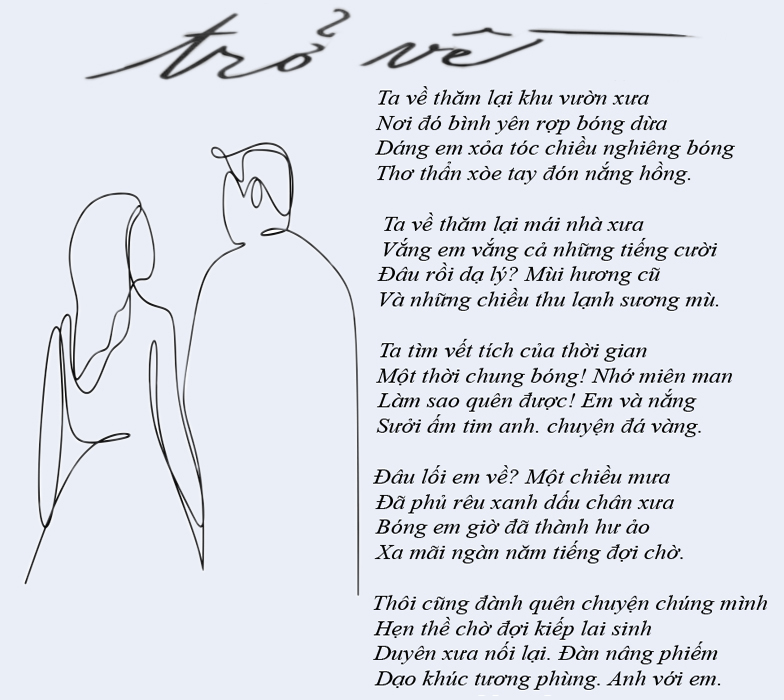 trở về
Ta về thăm lại khu vườn xưa
Nơi đó bình yên rợp bóng dừa
Dáng em xỏa tóc chiều nghiêng bóng
Thơ thẩn xòe tay đón nắng hồng.
Ta về thăm lại mái nhà xưa
Vắng em vắng cả những tiếng cười
Đâu rồi dạ lý? Mùi hương cũ
Và những chiều thu lạnh sương mù.
Ta tìm vết tích của thời gian
Một thời chung bóng! Nhớ miên man
Làm sao quên được! Em và nắng
Sưởi ấm tim anh. chuyện đá vàng.
Đâu lối em về? Một chiều mưa
Đã phủ rêu xanh dấu chân xưa
Bóng em giờ đã thành hư ảo
Xa mãi ngàn năm tiếng đợi chờ.
Thôi cũng đành quên chuyện chúng mình
Hẹn thề chờ đợi kiếp lai sinh
Duyên xưa nối lại. Đàn nâng phiếm
Dạo khúc tương phùng. Anh với em.